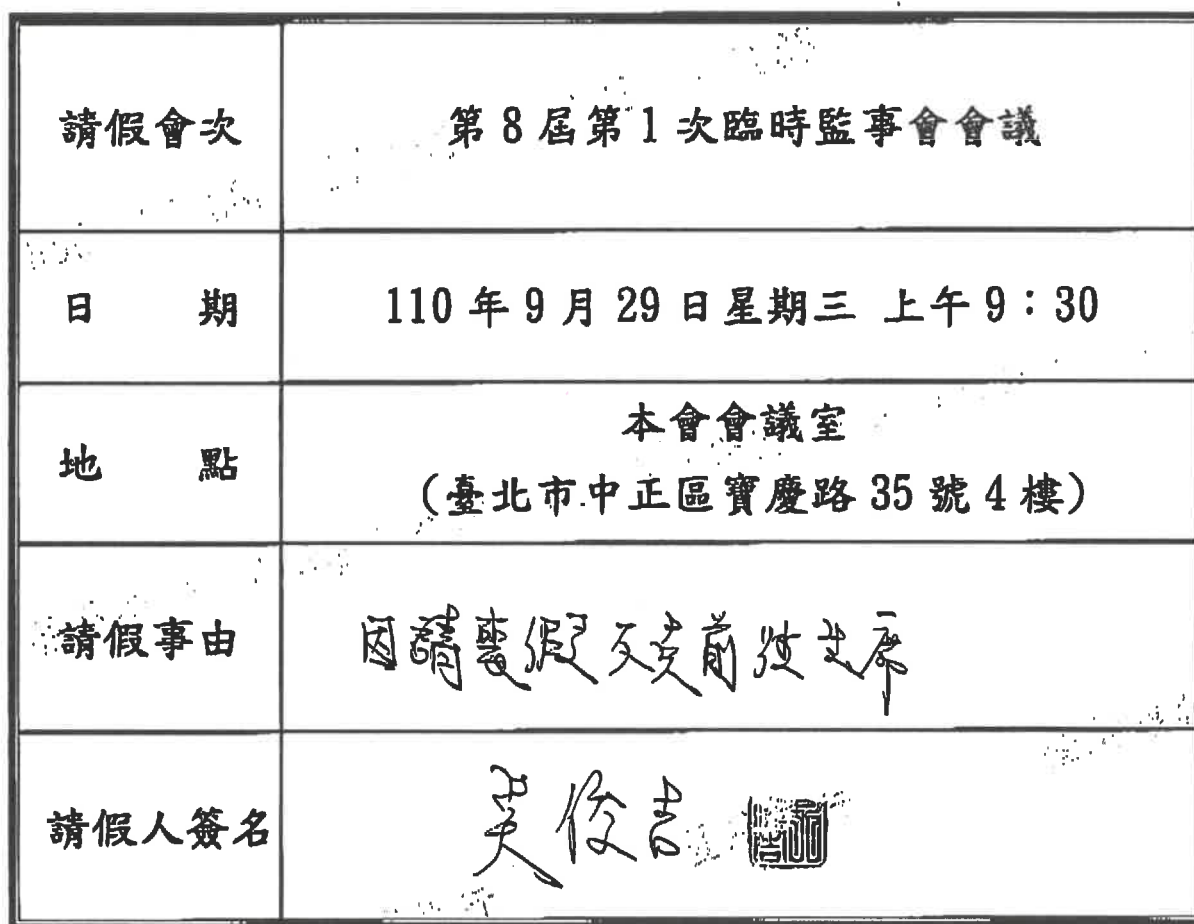 請假會次
第8屆第1次臨時監事會會議
日 期
110年9月29日星期三 上午9：30
地 點
本會會議室
(臺北市中正區寶慶路35號4樓)
請假事由
因請假前席
請假人簽名
吳俊吉